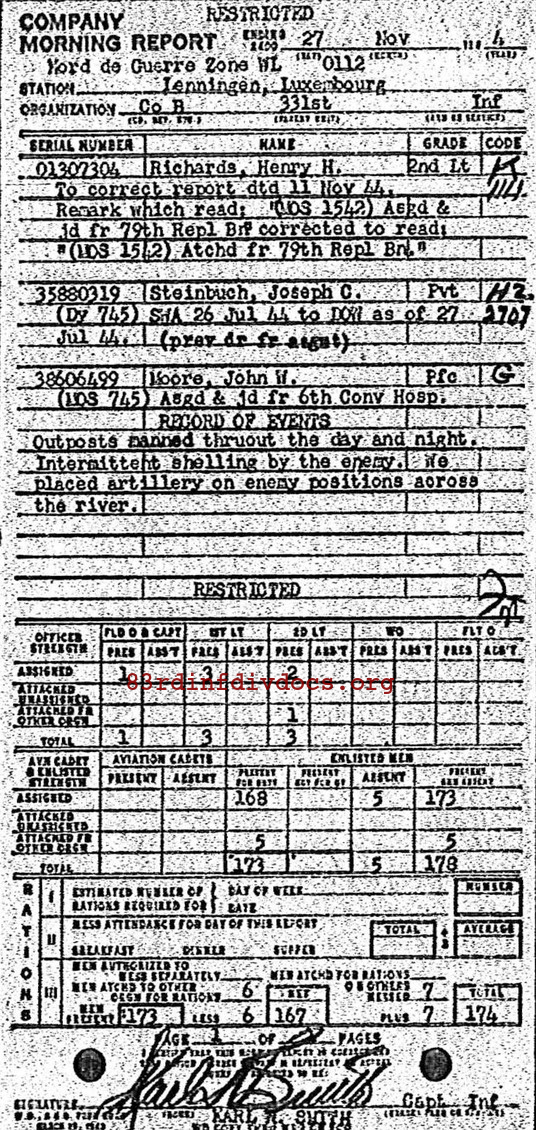 RESTRICTED
COMPANY
MORNING REPORT ENDING 27 Nov 4
Nord de Guerre Zone WL 0112
STATION Jenningen, Luxembourg
ORGANIZATION Co B 331st Inf
SERIAL NUMBER NAME GRADE CODE
01307304 Richards, Henry H. 2nd Lt K
To correct report dtd 11 Nov 44.
Remark which read; "(MOS 1542) Asgd &
jd fr 79th Repl Bn" corrected to read;
"(MOS 1542) Atchd fr 79th Repl Bn."
35880319 Steinbuch, Joseph C. Pvt H2.
(Dy 745) SWA 26 Jul 44 to DOW as of 27 2707
Jul 44. (prev dr fr asgmt)
38606499 Moore, John W. Pfc G
(MOS 745) Asgd & jd fr 6th Conv Hosp.
RECORD OF EVENTS
Outposts manned thruout the day and night.
Intermittent shelling by the enemy. We
placed artillery on enemy positions across
the river.
RESTRICTED
OFFICER STRENGTH FLD O & CAPT 1ST LT 2D LT WO FLT O
PRES ABS'T PRES ABS'T PRES ABS'T PRES ABS'T PRES ABS'T
ASSIGNED 1 3 2
83rdinfdivdocs.org
ATTACHED UNASSIGNED
ATTACHED FR OTHER ORGN 1
TOTAL 1 3 3
AVN CADET & ENLISTED STRENGTH AVIATION CADETS ENLISTED MEN
PRESENT ABSENT PRESENT FOR DUTY PRESENT NOT FOR DY ABSENT PRESENT AND ABSENT
ASSIGNED 168 5 173
ATTACHED UNASSIGNED
ATTACHED FR OTHER ORGN 5 5
TOTAL 173 5 178
RATIONS
I ESTIMATED NUMBER OF RATIONS REQUIRED FOR DAY OF WEEK DATE NUMBER
II MESS ATTENDANCE FOR DAY OF THIS REPORT TOTAL ÷ 3 AVERAGE
BREAKFAST DINNER SUPPER
III MEN AUTHORIZED TO MESS SEPARATELY MEN ATCHD FOR RATIONS
MEN ATCHD TO OTHER ORGN FOR RATIONS 6 NET OR OTHERS MESSED 7 TOTAL
MEN PRESENT 173 LESS 6 167 PLUS 7 174
PAGE 1 OF PAGES
SIGNATURE Karl R Smith Capt Inf